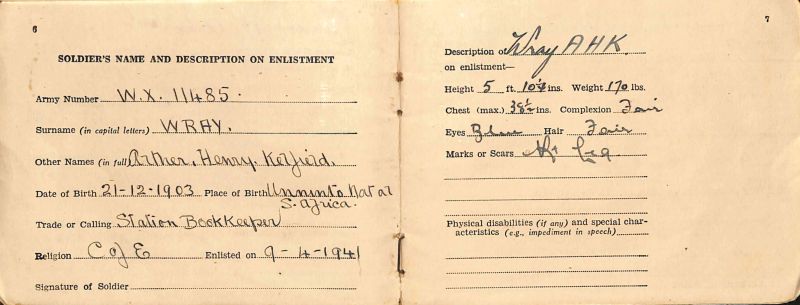 6
SOLDIER'S NAME AND DESCRIPTION ON ENLISTMENT
Army Number W.X. 11485.
Surname (in capital letters) WRAY.
Other Names (in full) Arther, Henry, Kelfield.
Date of Birth 21-12-1903 Place of Birth Umninto Natal
S. Africa.
Trade or Calling Station Bookkeeper
Religion C of E Enlisted on 9-4-1941
Signature of Soldier
7
Description of Wray AHK
on enlistment—
Height 5 ft. 10¼ ins. Weight 170 lbs.
Chest (max.) 38½ ins. Complexion Fair
Eyes Blue Hair Fair
Marks or Scars Leg
Physical disabilities (if any) and special char-
acteristics (e.g., impediment in speech)